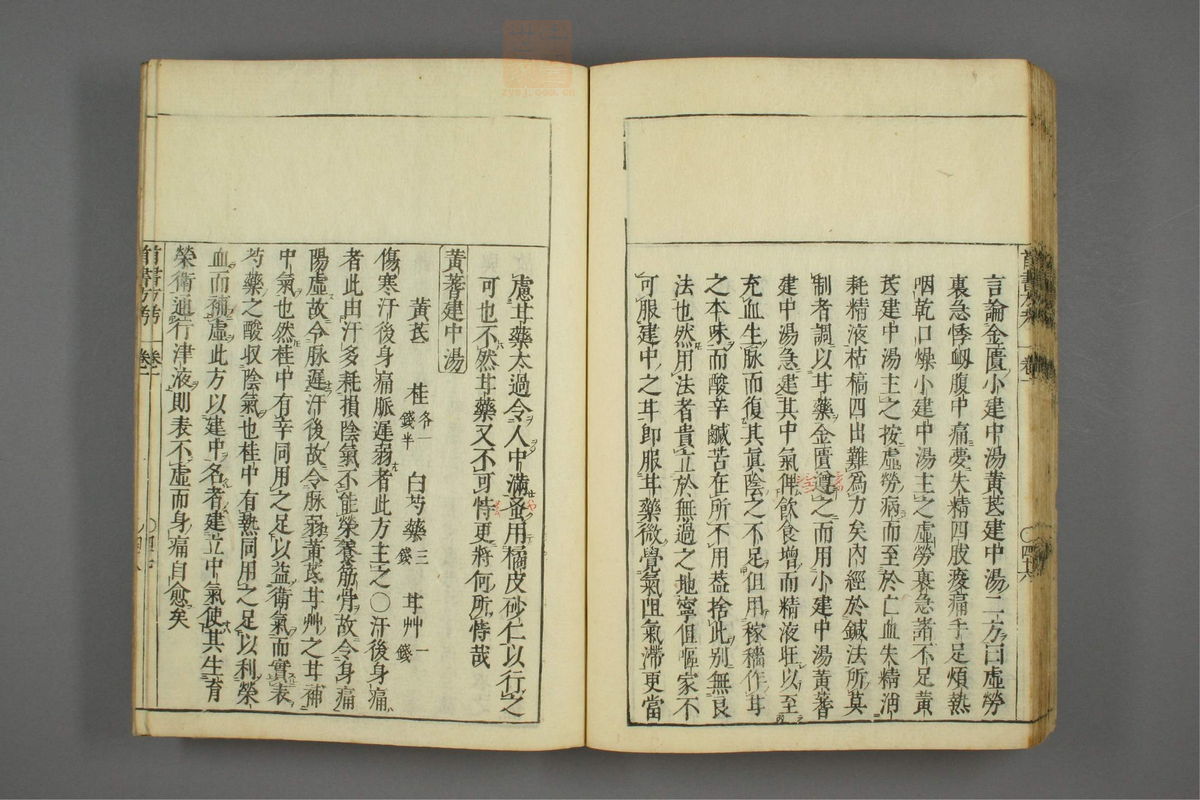 言論金匱小建中湯黃芪建中湯二方曰虛勞
裏急悸衂腹中痛夢失精四肢痠痛手足煩熱
咽乾口燥小建中湯主之虛勞裏急諸不足黃
芪建中湯主之按虛勞病而至於亡血失精消
耗精液枯槁四出難為力矣內經於鍼法所莫
制者調以甘藥金匱遵之而用小建中湯黃蓍
建中湯急建其中氣俾飲食增而精液旺以至
充血生脈而復其眞陰之不足但用稼穡作甘
之本味而酸辛鹹苦在所不用蓋捨此別無良
法也然用法者貴立於無過之地寧但嘔家不
可服建中之甘即服甘藥微覺氣阻氣滯更當
慮甘藥太過令人中滿蚤用橘皮砂仁以行之
可也不然甘藥又不可恃更將何所恃哉
黃蓍建中湯
黃芪 桂各一錢半 白芍藥三錢 甘艸一錢
傷寒汗後身痛脈遲弱者此方主之〇汗後身痛
者此由汗多耗損陰氣不能榮養筋骨故令身痛
陽虛故令脉遲汗後故令脉弱黃芪甘艸之甘補
中氣也然桂中有辛同用之足以益衛氣而實表
芍藥之酸収陰氣也桂中有熱同用之足以利榮
血而補虛此方以建中名者建立中氣使其生育
榮衛通行津液則表不虛而身痛自愈矣